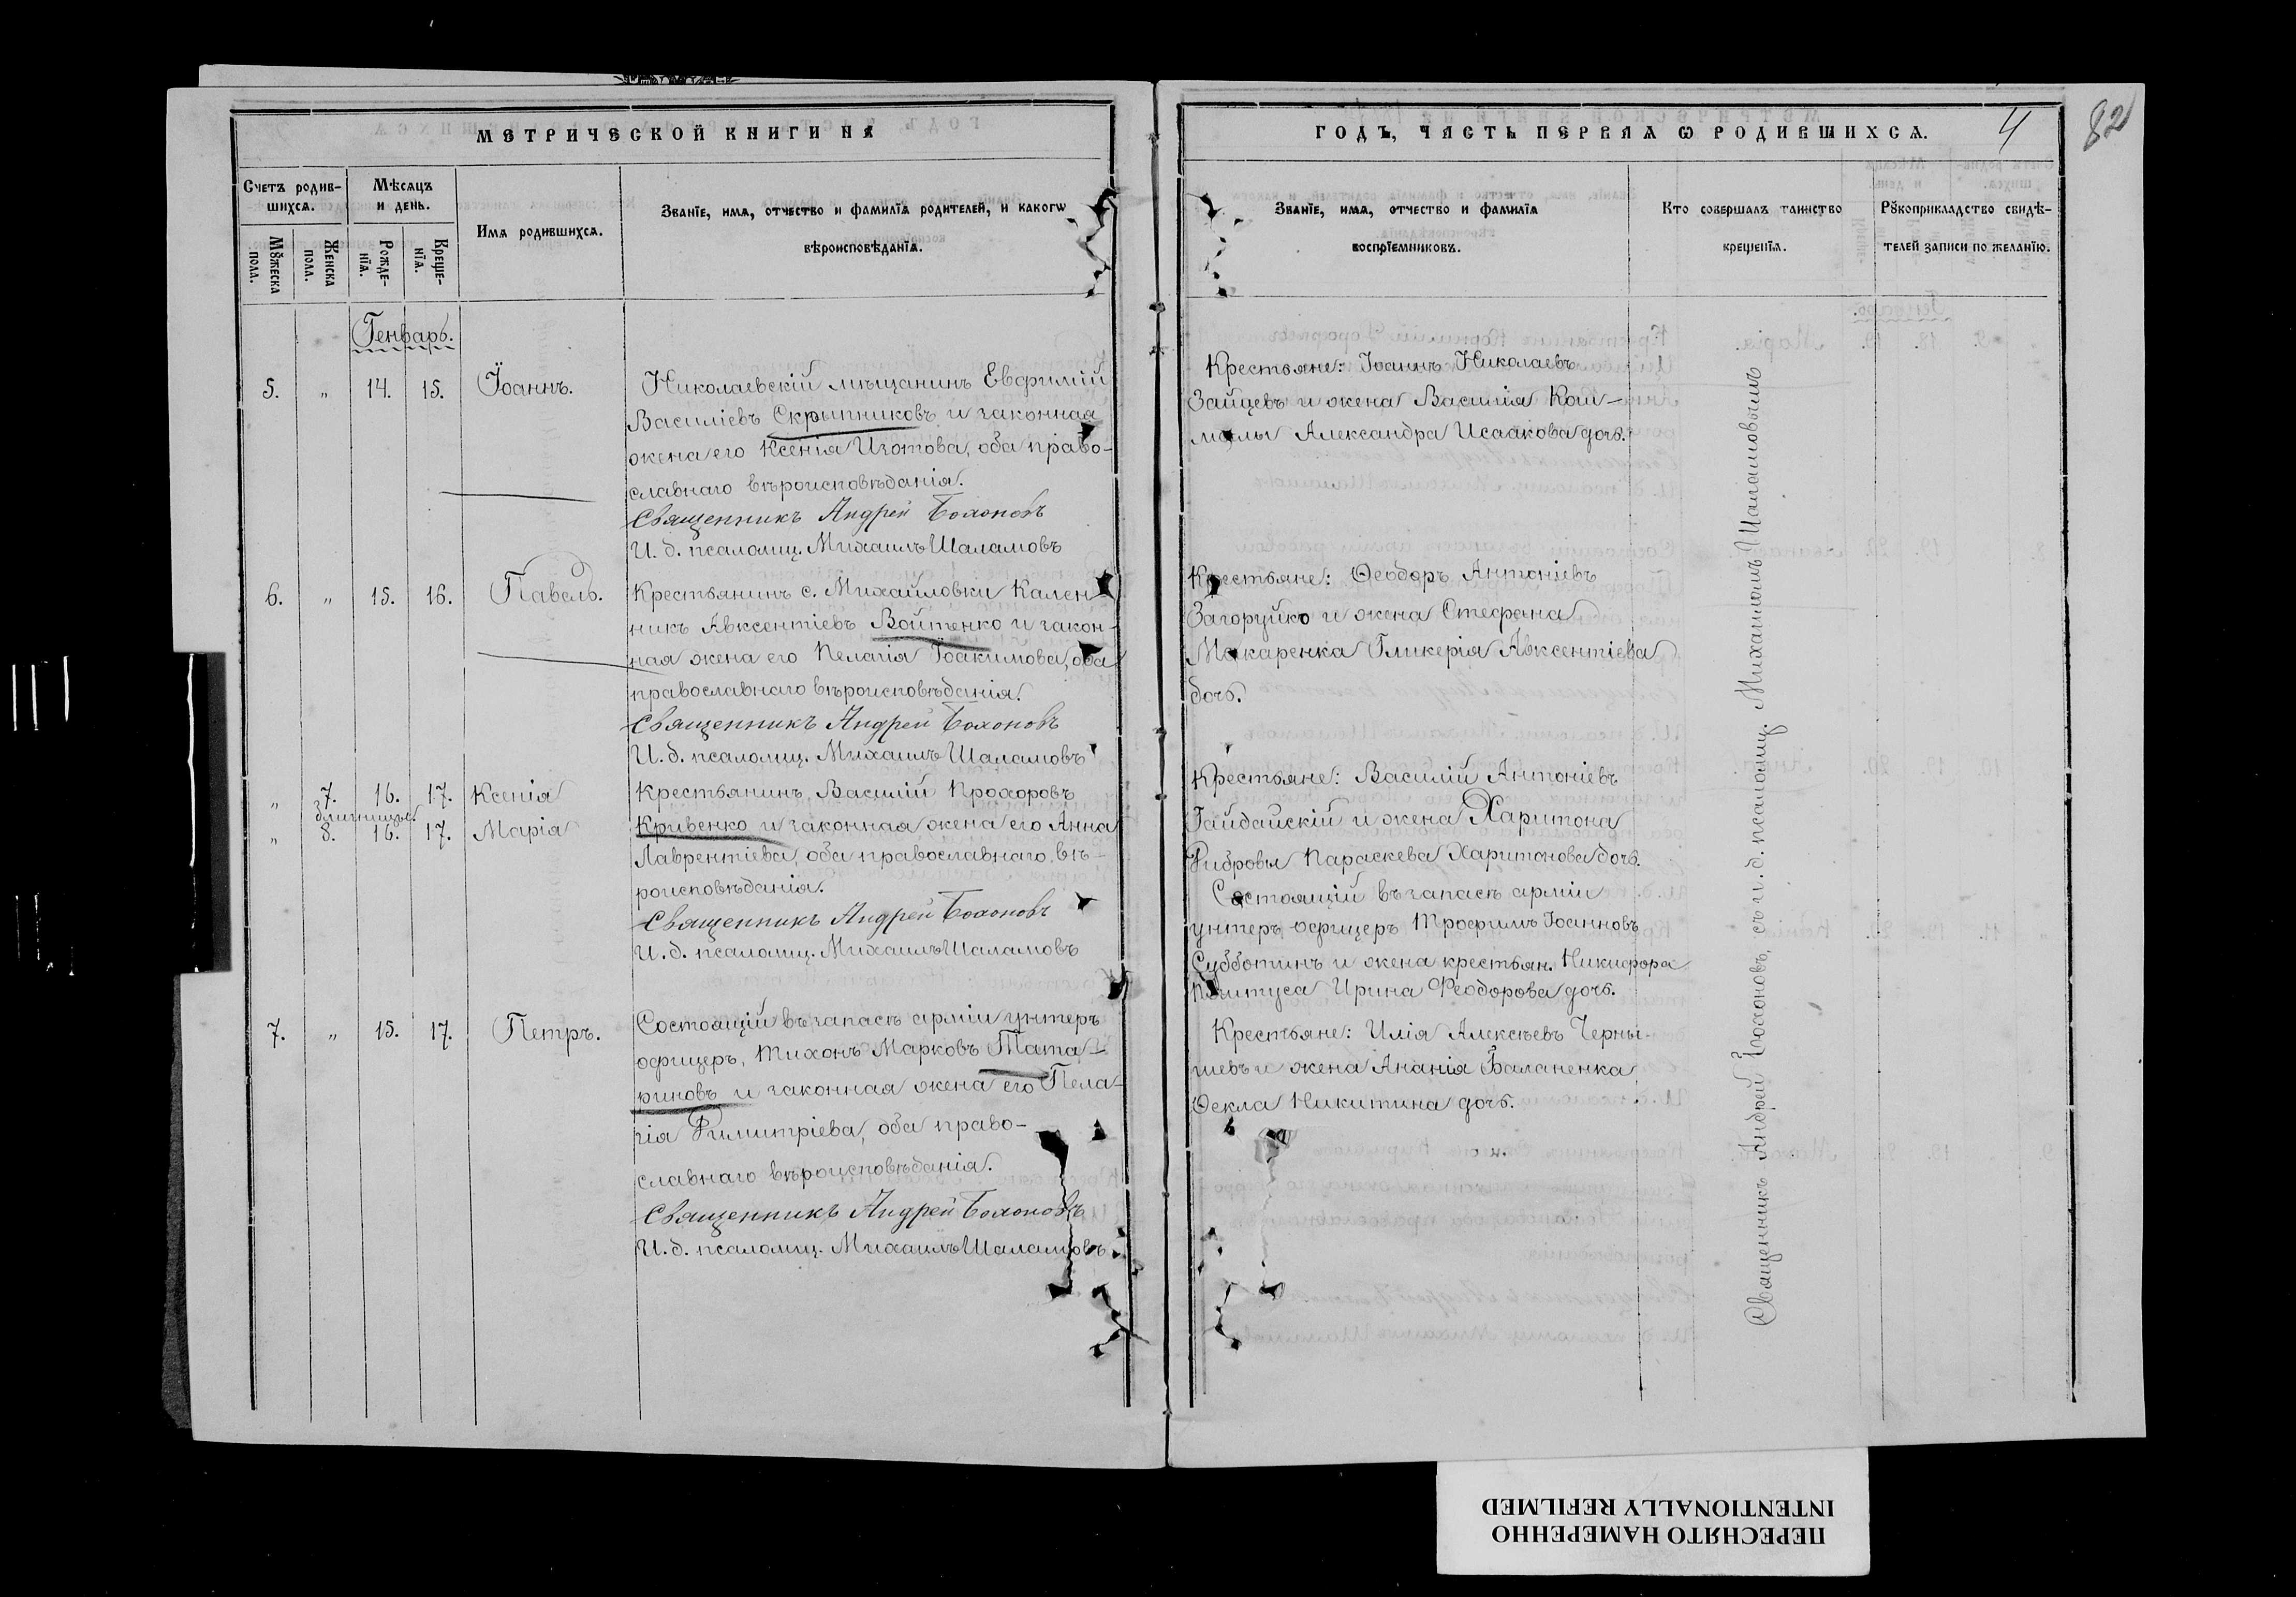 МЕТРИЧЕСКОЙ КНИГИ НА
Счетъ родив-
шихсѧ.
Мѣсѧцъ
и день.
Имѧ родившихсѧ.
Званїе, имѧ, отчество и фамилїѧ родителей, и какогѡ
вѣроисповѣданїѧ.
Мꙋжеска
пола.
Женска
пола.
Рожде-
нїѧ.
Креще-
нїѧ.
Генварь.
5. „ 14. 15. Іоаннъ.
Николаевскій мѣщанинъ Евфимій
Василіевъ Скрыпниковъ и законная
жена его Ксенія Изотова, оба право-
славнаго вѣроисповѣданія.
Священникъ Андрей Бохоновъ
И. д. псаломщ. Михаилъ Шаламовъ
6. „ 15. 16. Павелъ.
Крестьянинъ с. Михайловки Кален-
никъ Авксентіевъ Войтенко и закон-
ная жена его Пелагія Іоакимова, оба
православнаго вѣроисповѣданія.
Священникъ Андрей Бохоновъ
И. д. псаломщ. Михаилъ Шаламовъ
„ 7. 16. 17. Ксенія
близницы.
„ 8. 16. 17. Марія
Крестьянинъ Василій Прохоровъ
Кривенко и законная жена его Анна
Лаврентіева, оба православнаго вѣ-
роисповѣданія.
Священникъ Андрей Бохоновъ
И. д. псаломщ. Михаилъ Шаламовъ
7. „ 15. 17. Петръ.
Состоящій въ запасѣ арміи унтеръ
офицеръ, Тихонъ Марковъ Тата-
риновъ и законная жена его Пела-
гія Димитріева, оба право-
славнаго вѣроисповѣданія.
Священникъ Андрей Бохоновъ
И. д. псаломщ. Михаилъ Шаламовъ
ГОДЪ, ЧАСТЬ ПЕРВАѦ Ѡ РОДИВШИХСѦ.
4
82
Званїе, имѧ, отчество и фамилїѧ
воспрїемниковъ.
Кто совершалъ таинство
крещенїѧ.
Рꙋкоприкладство свидѣ-
телей записи по желанїю.
Крестьяне: Іоаннъ Николаевъ
Зайцевъ и жена Василія Кой-
малы Александра Исаакова дочь.
Крестьяне: Ѳеодоръ Антоніевъ
Загоруйко и жена Стефана
Макаренка Гликерія Авксентіева
дочь.
Крестьяне: Василій Антоніевъ
Гайдайскій и жена Харитона
Дибровы Параскева Харитонова дочь.
Состоящій въ запасѣ арміи
унтеръ офицеръ Трофимъ Іоанновъ
Субботинъ и жена крестьян. Никифора
Ирина Феодорова дочь.
Крестьяне: Илія Алексѣевъ Черны-
шевъ и жена Ананія Баланенка
Ѳекла Никитина дочь.
Священникъ Андрей Бохоновъ, съ и. д. псаломщ. Михаиломъ Шаламовымъ
ПЕРЕСНЯТО НАМЕРЕННО
INTENTIONALLY REFILMED